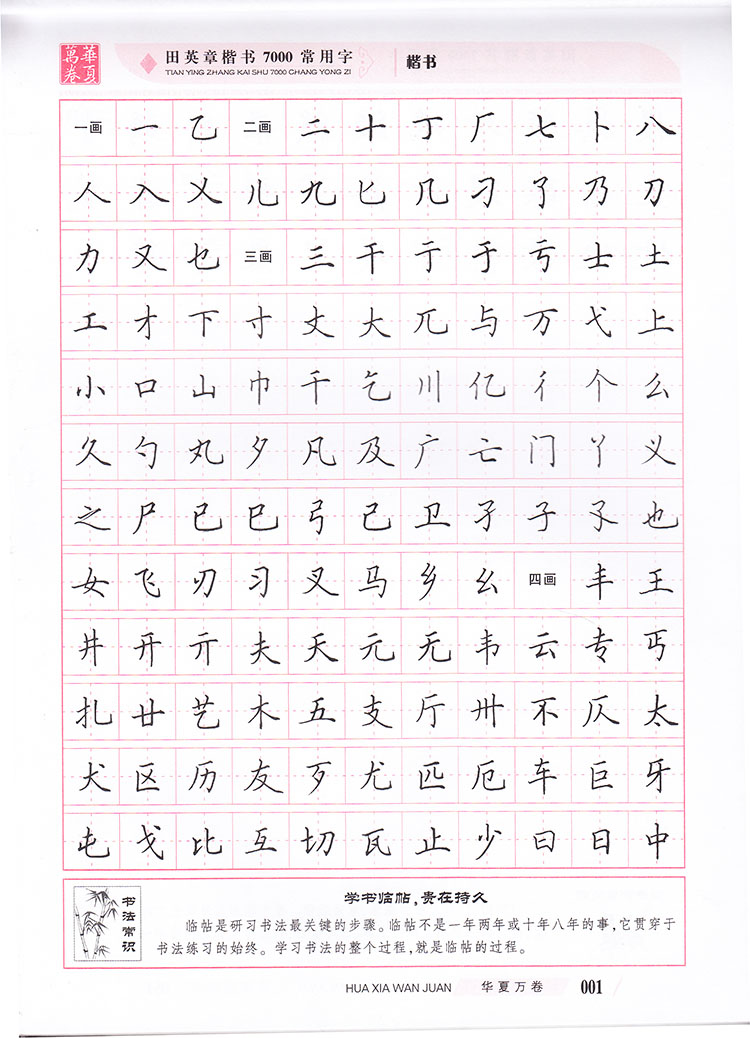 華夏萬卷
田英章楷书 7000 常用字
TIAN YING ZHANG KAI SHU 7000 CHANG YONG ZI
楷书
一画 一 乙 二画 二 十 丁 厂 七 卜 八
人 入 乂 儿 九 匕 几 刁 了 乃 刀
力 又 乜 三画 三 干 亍 于 亏 士 土
工 才 下 寸 丈 大 兀 与 万 弋 上
小 口 山 巾 千 乞 川 亿 彳 个 么
久 勺 丸 夕 凡 及 广 亡 门 丫 义
之 尸 已 巳 弓 己 卫 孑 子 孓 也
女 飞 刃 习 叉 马 乡 幺 四画 丰 王
井 开 亓 夫 天 元 无 韦 云 专 丐
扎 廿 艺 木 五 支 厅 卅 不 仄 太
犬 区 历 友 歹 尤 匹 厄 车 巨 牙
屯 戈 比 互 切 瓦 止 少 曰 日 中
书法常识
学书临帖，贵在持久
临帖是研习书法最关键的步骤。临帖不是一年两年或十年八年的事，它贯穿于
书法练习的始终。学习书法的整个过程，就是临帖的过程。
HUA XIA WAN JUAN 华夏万卷 001